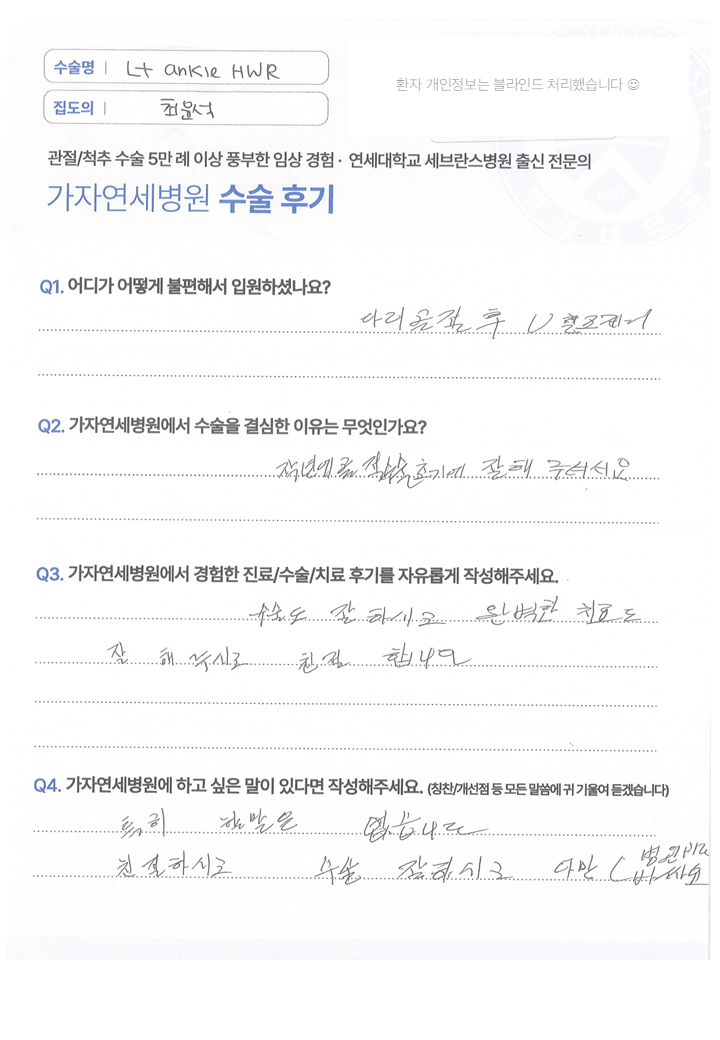 수술명 | Lt ankle HWR
환자 개인정보는 블라인드 처리했습니다 ☺
집도의 | 최윤석
관절/척추 수술 5만 례 이상 풍부한 임상 경험 · 연세대학교 세브란스병원 출신 전문의
가자연세병원 수술 후기
Q1. 어디가 어떻게 불편해서 입원하셨나요?
다리골절 후
Q2. 가자연세병원에서 수술을 결심한 이유는 무엇인가요?
잘해 주셔서요
Q3. 가자연세병원에서 경험한 진료/수술/치료 후기를 자유롭게 작성해주세요.
수술도 잘 하시고 완벽한 치료도
잘 해 주시고 친절 합니다
Q4. 가자연세병원에 하고 싶은 말이 있다면 작성해주세요. (칭찬/개선점 등 모든 말씀에 귀 기울여 듣겠습니다)
특히 할말은 없습니다
친절하시고 수술 잘하시고 다만 (병원비가